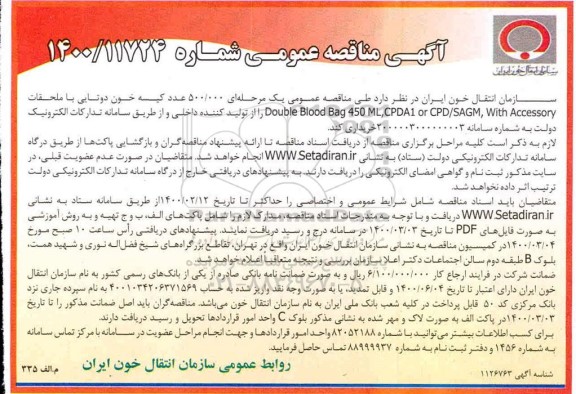 آگهی مناقصه عمومی شماره ۱۴۰۰/۱۱۷۲۴
سازمان انتقال خون ایران در نظر دارد طی مناقصه عمومی یک مرحله‌ای ۵۰۰/۰۰۰ عدد کیسه خون دوتایی با ملحقات
Double Blood Bag 450 ML,CPDA1 or CPD/SAGM, With Accessory را از تولید کننده داخلی و از طریق سامانه تدارکات الکترونیک
دولت به شماره سامانه خریداری کند.
لازم به ذکر است کلیه مراحل برگزاری مناقصه از دریافت اسناد مناقصه تا ارائه پیشنهاد مناقصه‌گران و بازگشایی پاکت‌ها از طریق درگاه
سامانه تدارکات الکترونیکی دولت (ستاد) به نشانی WWW.Setadiran.ir انجام خواهد شد. متقاضیان در صورت عدم عضویت قبلی، در
سایت مذکور ثبت نام و گواهی امضای الکترونیکی را دریافت دارند. به پیشنهادهای دریافتی خارج از درگاه سامانه تدارکات الکترونیکی دولت
ترتیب اثر داده نخواهد شد.
متقاضیان باید اسناد مناقصه شامل شرایط عمومی و اختصاصی را حداکثر تا تاریخ ۱۴۰۰/۰۲/۱۲ از طریق سامانه ستاد به نشانی
WWW.Setadiran.ir دریافت و با توجه به مندرجات اسناد مناقصه مدارک لازم را شامل پاکت‌های الف، ب و ج تهیه و به روش آموزشی
به صورت فایل‌های PDF تا تاریخ ۱۴۰۰/۰۳/۰۳ در سامانه درج و رسید دریافت نمایند. پیشنهادهای دریافتی رأس ساعت ۱۰ صبح مورخ
۱۴۰۰/۰۳/۰۴ در کمیسیون مناقصه به نشانی سازمان انتقال خون ایران واقع در تهران، تقاطع بزرگراه‌های شیخ فضل‌اله نوری و شهید همت،
بلوک B طبقه دوم سالن اجتماعات دکتر اعلا سازمان بررسی و نتیجه متعاقباً اعلام خواهد شد.
ضمانت شرکت در فرایند ارجاع کار ۶/۱۰۰/۰۰۰/۰۰۰ ریال و به صورت ضمانت نامه بانکی صادره از یکی از بانک‌های رسمی کشور به نام سازمان انتقال
خون ایران دارای اعتبار تا تاریخ ۱۴۰۰/۰۶/۰۴ و قابل تمدید، یا به صورت وجه نقد واریز شده به حساب ۴۰۰۱۰۳۴۲۰۶۳۷۱۵۶۹ به نام سپرده جاری نزد
بانک مرکزی کد ۵۰ قابل پرداخت در کلیه شعب بانک ملی ایران به نام سازمان انتقال خون می‌باشد. مناقصه‌گران باید اصل ضمانت مذکور را تا تاریخ
۱۴۰۰/۰۳/۰۳ در پاکت الف به صورت لاک و مهر شده به نشانی مذکور بلوک C واحد امور قراردادها تحویل و رسید دریافت دارند.
برای کسب اطلاعات بیشتر می‌توانید با شماره ۸۲۰۵۲۱۸۸ واحد امور قراردادها و جهت انجام مراحل عضویت در سامانه با مرکز تماس سامانه
به شماره ۱۴۵۶ و دفتر ثبت نام به شماره ۸۸۹۹۹۹۳۷ تماس حاصل فرمایید.
روابط عمومی سازمان انتقال خون ایران
م.الف ۳۳۵
شناسه آگهی ۱۱۲۶۷۶۳